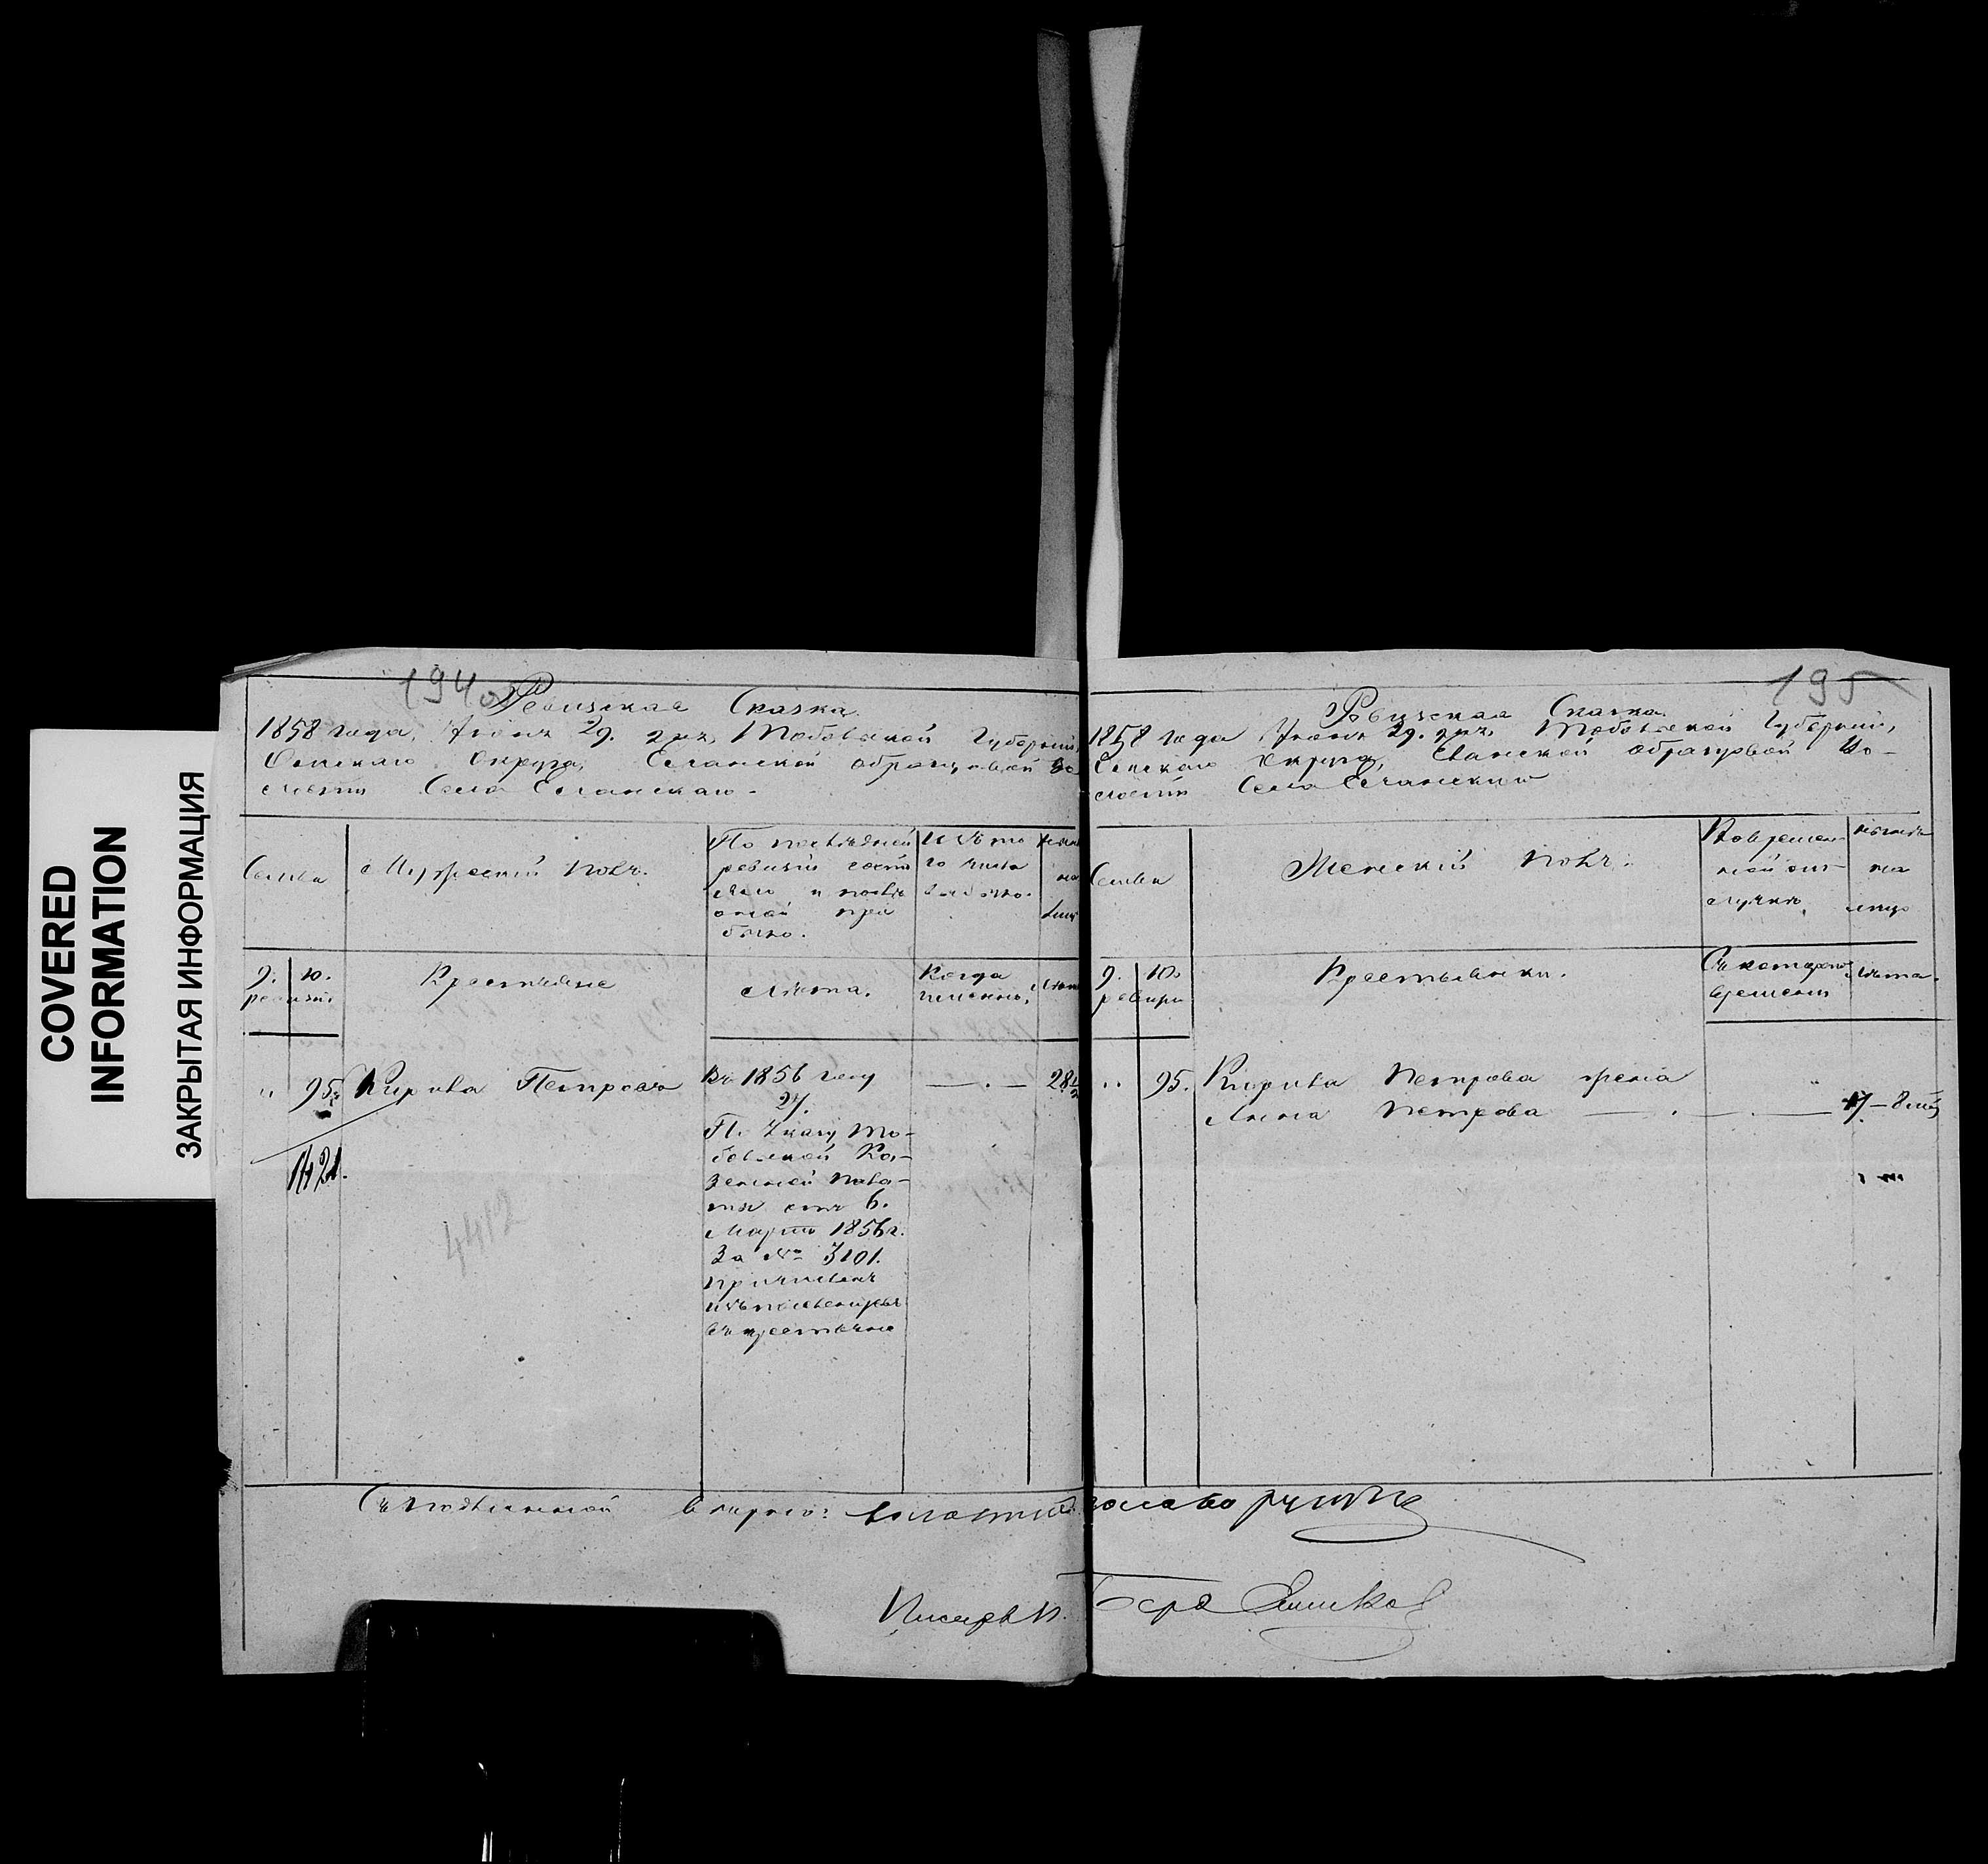 COVERED
INFORMATION
ЗАКРЫТАЯ ИНФОРМАЦИЯ
194
Ревизская Сказка.
1858 года, Июня 29. дня, Тобольской Губернии,
Омскаго Округа, Еланской образцовой Во
лости Села Еланскаго.
Семьи
Мужескій полъ.
По последней
ревизіи состо
яло и после
оной при
было.
Изъ то
го числа
выбыло.
на
лицо
9. 10.
ревизіи
Крестьяне
Лѣта.
Когда
именно.
" 95. Кирила Петровъ
Въ 1856 году
27.
По Указу То-
больской Ка-
зенной пала-
ты отъ 6.
Марта 1856 г.
За № 3101.
причисленъ
изъ поселенцевъ
въ крестьяне
28½
1421.
4412
195
Ревизская Сказка.
1858 года Июня 29. дня, Тобольской Губерніи,
Омскаго Округа, Еланской образцовой Во-
лости Села Еланскаго
Семьи
Женскій полъ.
Во времен-
ной от-
лучкѣ.
на
лицо
9. 10.
ревизіи
Крестьянки.
Съ котораго
времени
Лѣта.
" 95. Кирилы Петрова жена
Анна Петрова 17 — 8 мѣ
Съ подлинной верно: волостной голова
Писарь